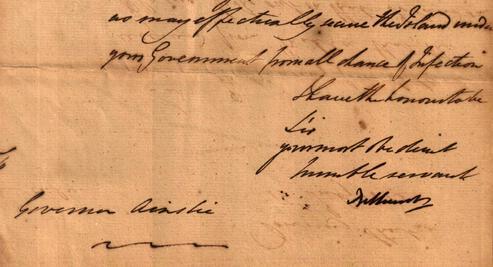 as may effectually save the Island under
your Government from all chance of Infection
I have the honour to be
Sir
your most Obedient
humble servant
Governor Ainslie